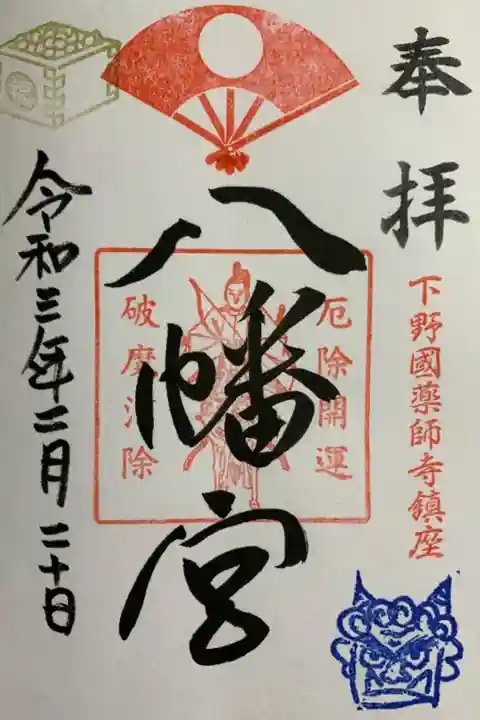 奉拝
下野國薬師寺鎮座
厄除開運
八幡宮
破魔消除
令和三年二月二十日